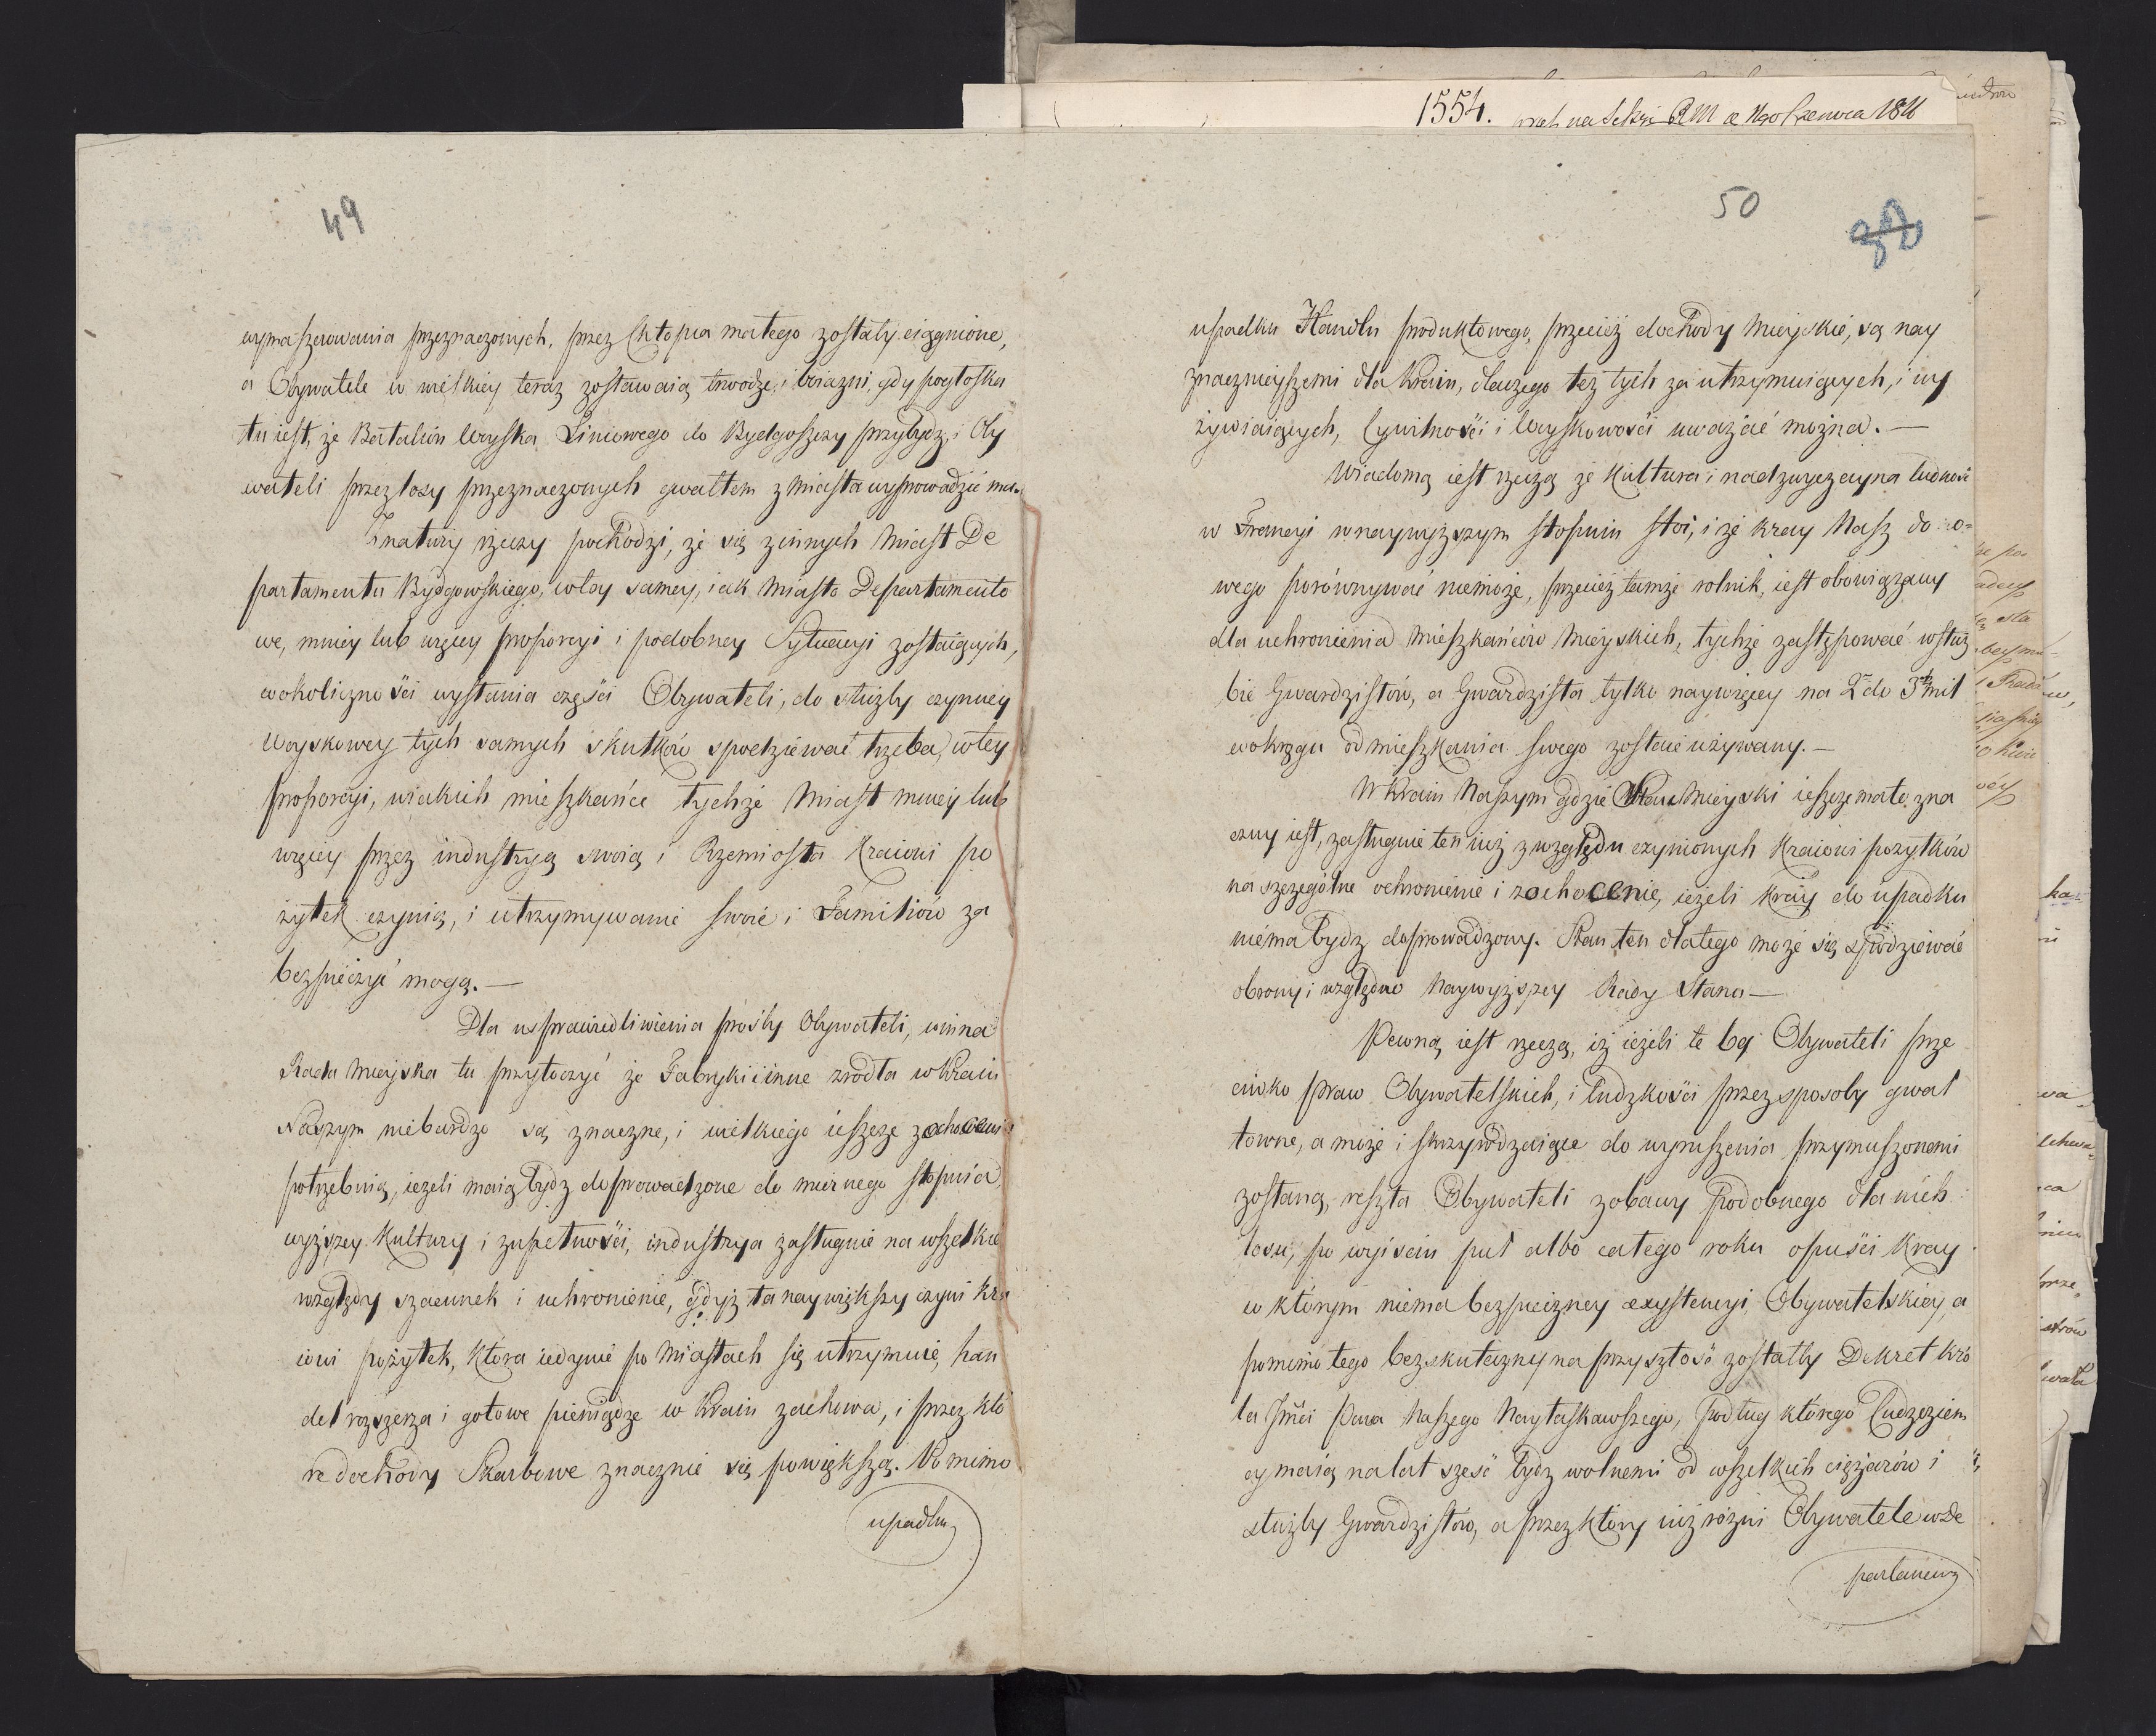 1554. na Sekcyi RM Czerwca 1811
49
wymaszerowania przeznaczonych, przez Chłopca małego zostały ciągnione,
a Obywatele w wielkiey teraz zostawaią trwodze, i boiazni, gdy pogłoska
tu iest, że Batalion Woyska Liniowego do Bydgoszczy przybydz, i Oby
wateli przez losy przeznaczonych gwałtem z Miasta wyprowadzić ma.
Z natury rzeczy pochodzi, że się z innych Miast De
partamentu Bydgowskiego, w tey samey, iak Miasto Departamento
we, mniey lub więcey proporcyi i podobney Sytuacyi zostaiących,
w okoliczności wysłania części Obywateli, do służby czynney
Woyskowey tych samych skutków spodziewać trzeba, w tey
proporcyi, w iakich mieszkańce tychże Miast mniey lub
więcey przez industryą swoią i Rzemiosła Kraiowi po
żytek czynią, i utrzymywanie swoie i Familiów za
bezpieczyć mogą. —
Dla usprawiedliwienia prośby Obywateli, winna
Rada Mieyska tu przytoczyć że Fabryki i inne zrodła w Kraiu
Naszym niebardzo są znaczne, i wielkiego ieszcze zachoceni
potrzebuią, ieżeli maią bydz doprowadzone do miernego stopnia
wyższey Kultury i zupełności, industrya zasługuie na wszelkie
względy szacunek i uchronienie, gdyż ta naywiększy czyni kra
iowi pożytek, która iedynie po Miastach się utrzymuie, han
del rozszerza i gotowe pieniądze w Kraiu zachowa, i przez któ
re dochody Skarbowe znacznie się powiększą. Pomimo
upadku
50
upadku Handlu produktowego, przecież dochody Mieyskie, są nay
znacznieyszemi dla Kraiu, dlaczego też tych za utrzymuiących, i wy
żywiaiących, Cywilności i Woyskowości uważać można. —
Wiadomą iest rzeczą że Kultura i nadzwyczayna ludność
w Francyi w naywyższym stopniu stoi, i że kray Nasz do no=
wego porównywać niemoże, przecież tamże rolnik, iest obowiązany
dla uchronienia Mieszkańców Mieyskich, tychże zastępować w służ
bie Gwardzistów, a Gwardzista tylko naywięcey na 2 do 3 mil
w okręgu od mieszkania swego zostaie używany. —
W Kraiu Naszym gdzie Stan Mieyski ieszcze mało zna
czny iest, zasługuie ten iuż z względu czynionych Kraiowi pożytków
na szczególne ochronienie i zachocenie, ieżeli kray do upadku
niema bydz doprowadzony. Stan ten dlatego może się spodziewać
obrony i względów Naywyższey Rady Stanu —
Pewną iest rzeczą, iż ieżeli te bą Obywateli prze
ciwko praw Obywatelskich, i ludzkości przez sposoby gwał
towne, a może i skrzywdzaiące do wyruszenia przymuszonemi
zostaną, reszta Obywateli z obawy podobnego dla nich
losu, po wyiściu pół albo całego roku opuści Kray
w którym niema bezpieczney exystencyi Obywatelskiey, a
pomimo tego bezskuteczny na przyszłość zostałby Dekret Kró
la Jmci Pana Naszego Nayłaskawszego, podług którego Cudzoziem
cy maią na lat sześć bydz wolnemi od wszelkich ciężarów i
służby Gwardzistów, a przez który iuż różni Obywatele w De
partamencie